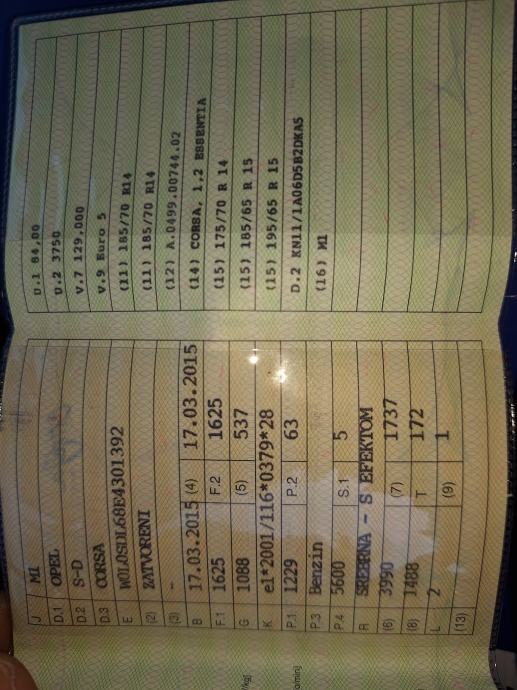 J M1
D.1 OPEL
D.2 S-D
D.3 CORSA
E W0L0SDL68E4301392
(2) ZATVORENI
(3) -
B 17.03.2015 (4) 17.03.2015
F.1 1625 F.2 1625
G 1088 (5) 537
K e1*2001/116*0379*28
P.1 1229 P.2 63
P.3 Benzin
P.4 5600 S.1 5
R SREBRNA - S EFEKTOM
(6) 3990 (7) 1737
(8) 1488 T 172
L 2 (9) 1
(13)
D.1 84,00
D.2 3750
V.7 129,000
V.9 Euro 5
(11) 185/70 R14
(11) 185/70 R14
(12) A.0499.00744.02
(14) CORSA, 1,2 ESSENTIA
(15) 175/70 R 14
(15) 185/65 R 15
(15) 195/65 R 15
D.2 KN11/1A06D5B2DKA5
(16) M1